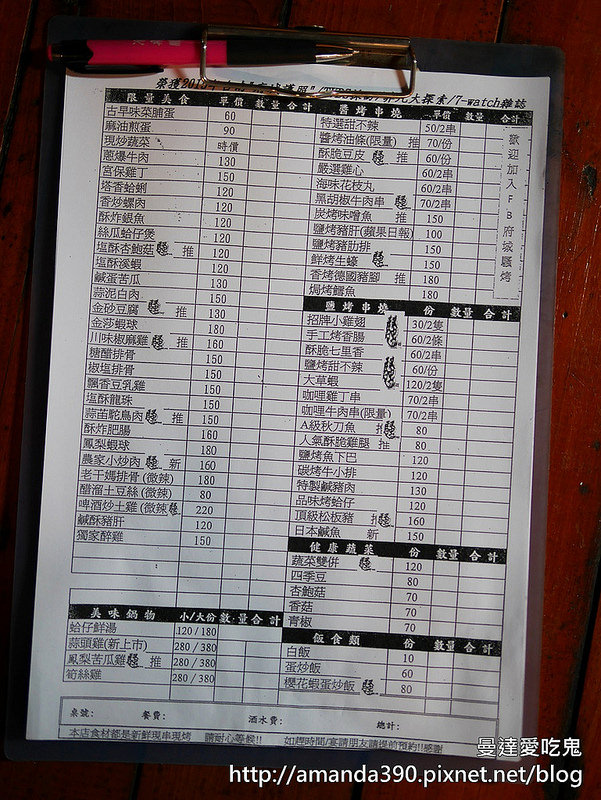 榮獲2013
大探索/7-watch雜誌
限量美食 單價 數量 合計
古早味菜脯蛋 60
麻油煎蛋 90
現炒蔬菜 時價
蔥爆牛肉 130
宮保雞丁 150
塔香蛤蜊 120
香炒螺肉 120
酥炸銀魚 120
絲瓜蛤仔煲 120
塩酥杏鮑菇 推 120
塩酥溪蝦 120
鹹蛋苦瓜 130
蒜泥白肉 150
金砂豆腐 推 130
金莎蝦球 180
川味椒麻雞 推 160
糖醋排骨 150
椒塩排骨 150
飄香豆乳雞 150
塩酥龍珠 150
蒜苗鴕鳥肉 推 150
酥炸肥腸 160
鳳梨蝦球 180
農家小炒肉 新 160
老干媽排骨(微辣) 180
醋溜土豆絲(微辣) 80
啤酒炒土雞(微辣) 220
鹹酥豬肝 120
獨家醉雞 150
美味鍋物 小/大份 數量 合計
蛤仔鮮湯 120/180
蒜頭雞(新上市) 280/380
鳳梨苦瓜雞 推 280/380
筍絲雞 280/380
醬烤串燒 單價 數量 合計
特選甜不辣 50/2串
醬烤油條(限量) 推 70/份
酥脆豆皮 推 60/份
嚴選雞心 60/2串
海味花枝丸 60/2串
黑胡椒牛肉串 70/2串
炭烤味噌魚 推 150
鹽烤豬肝(蘋果日報) 100
鹽烤豬肋排 150
鮮烤生蠔 150
香烤德國豬腳 推 180
焗烤鱈魚 180
歡迎加入FB府城騷烤
鹽烤串燒 份 數量 合計
招牌小雞翅 30/2隻
手工烤香腸 60/2條
酥脆七里香 60/2串
鹽烤甜不辣 60/份
大草蝦 120/2隻
咖哩雞丁串 70/2串
咖哩牛肉串(限量) 70/2串
A級秋刀魚 80
人氣酥脆雞腿 推 80
鹽烤魚下巴 120
碳烤牛小排 120
特製鹹豬肉 130
品味烤蛤仔 120
頂級松板豬 160
日本鹹魚 新 150
健康蔬菜 份 數量 合計
蔬菜雙併 120
四季豆 80
杏鮑菇 70
香菇 70
青椒 70
飯食類 份 數量 合計
白飯 10
蛋炒飯 60
櫻花蝦蛋炒飯 80
桌號： 餐費： 酒水費： 總計：
本店食材都是新鮮現串現烤 請耐心等候!! 如趕時間/宴請朋友請提前預約!!感謝
曼達愛吃鬼
http://amanda390.pixnet.net/blog